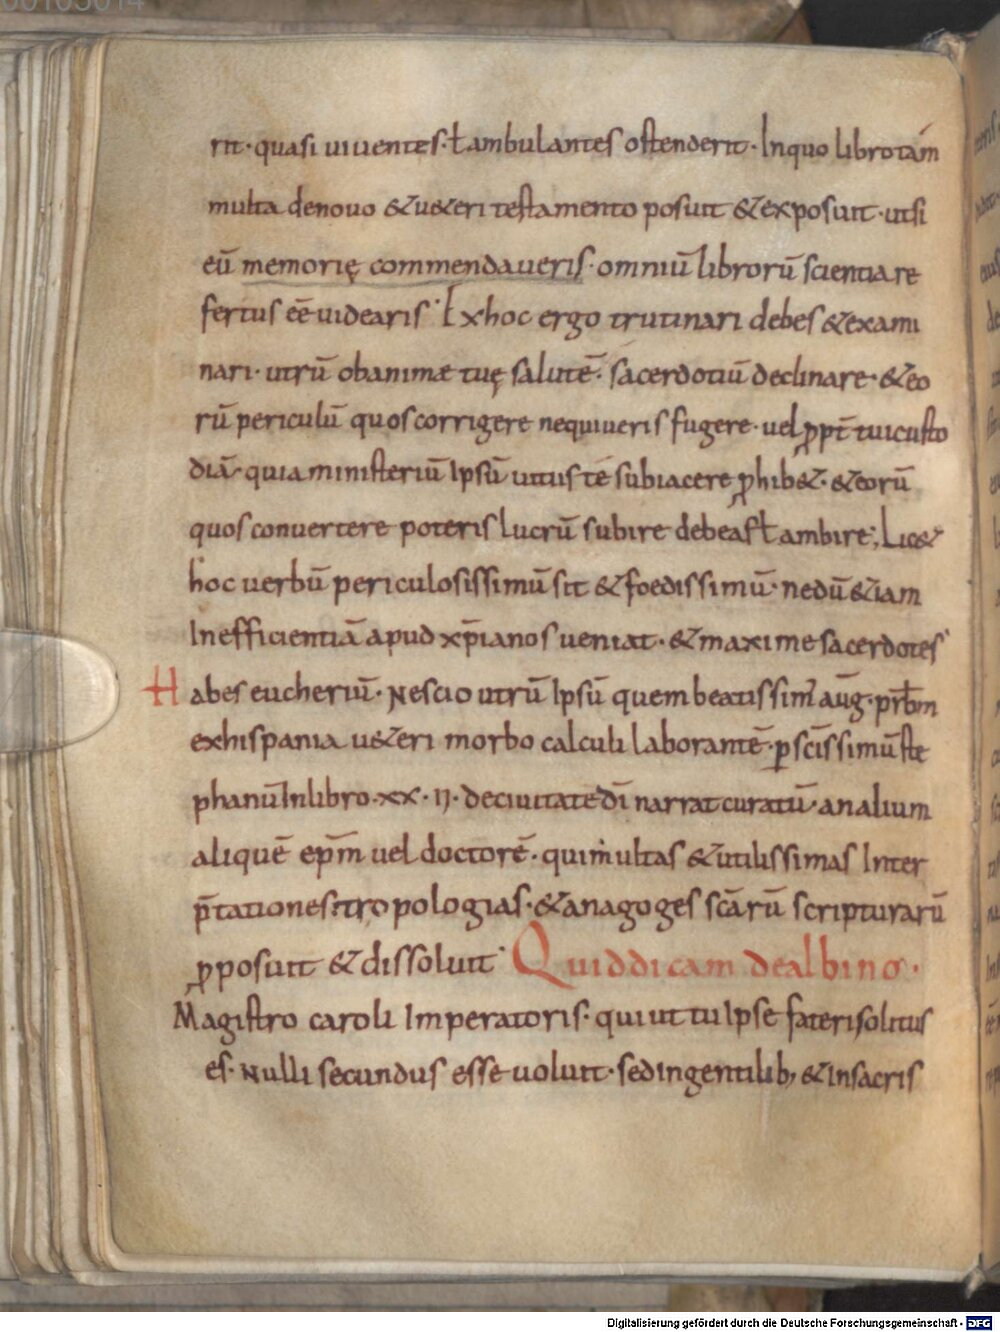 00105014
rit· quasi viventes· ł ambulantes ostenderit· In quo libro tam
multa de novo & u&eri testamento posuit & exposuit· ut si
eū memorię commendaveris· omniū librorū scientia re
fertus eē videaris· Ex hoc ergo trutinari debes & exami
nari· utrū ob animæ tuę salutē· sacerdotiū declinare· & eo
rū periculū quos corrigere nequiveris fugere· vel ꝓpt̄ tui custo
diā· quia ministeriū ipsū vitus te subiacere ꝓhib&· & eorū
quos convertere poteris lucrū subire debeas ł ambire; Lic&
hoc verbū periculosissimū sit & foedissimū· nedū &iam
In efficientiā apud xp̄ianos veniat· & maxime sacerdotes·
Habes eucheriū· Nescio utrū ipsū quem beatissim' aug̅· pr̄bm
ex hispania u&eri morbo calculi laborantē· ꝑ sc̄issimū ste
phanū In libro· xx· ii· de civitate dī narrat curatū· an alium
aliquē ep̄m vel doctorē· qui multas & utilissimas Inter
p̄tationes tropologias· & anagoges sc̄arū scripturarū
ꝓposuit & dissoluit· Quid dicam de albino·
Magistro caroli Imperatoris· qui ut tu ipse fateri solitus
es· Nulli secundus esse voluit· sed in gentilib; & In sacris
Digitalisierung gefördert durch die Deutsche Forschungsgemeinschaft - DFG